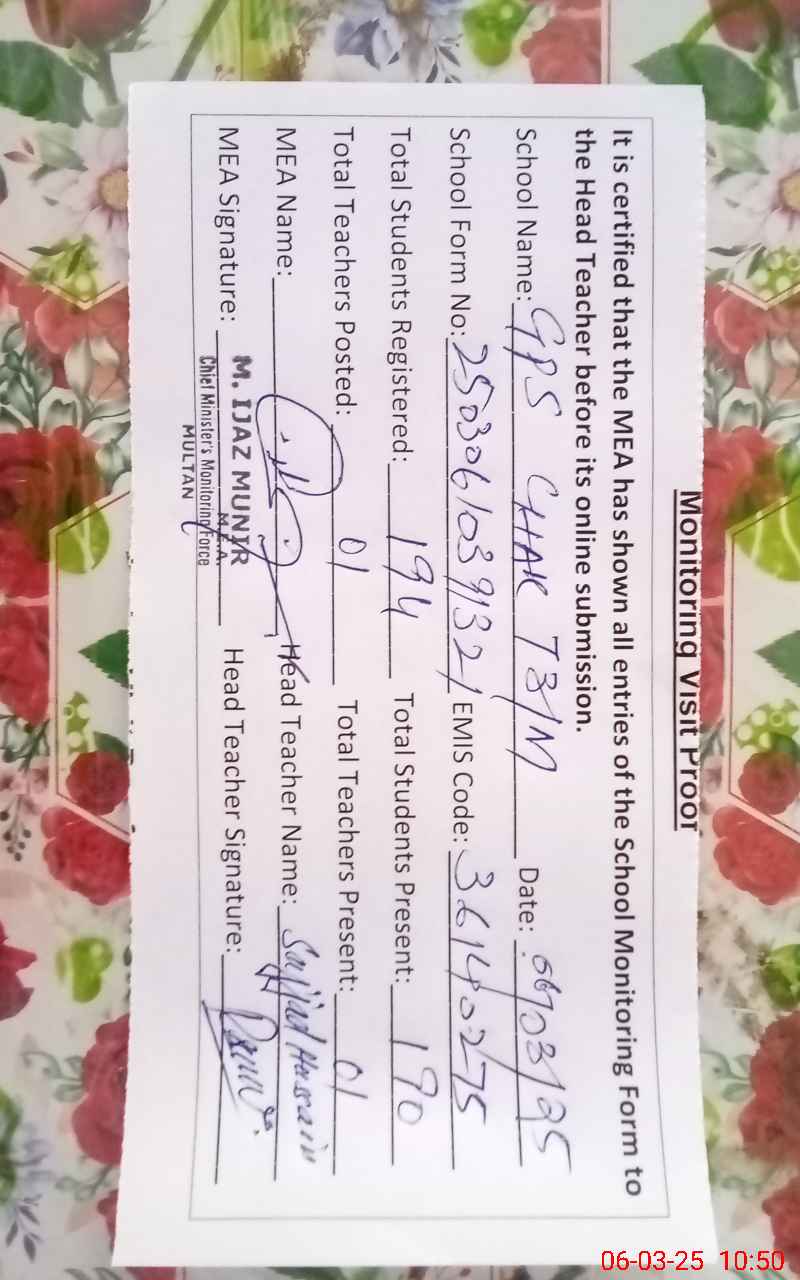 Monitoring Visit Proof
It is certified that the MEA has shown all entries of the School Monitoring Form to
the Head Teacher before its online submission.
School Name: GPS CHAK T3/M Date: 06/03/25
School Form No: 25030610391321 EMIS Code: 36140275
Total Students Registered: 194 Total Students Present: 190
Total Teachers Posted: 01 Total Teachers Present: 01
MEA Name: Head Teacher Name: Sajjad Hussain
MEA Signature: Head Teacher Signature:
M. IJAZ MUNIR
M.E.A.
Chief Minister's Monitoring Force
MULTAN
06-03-25 10:50